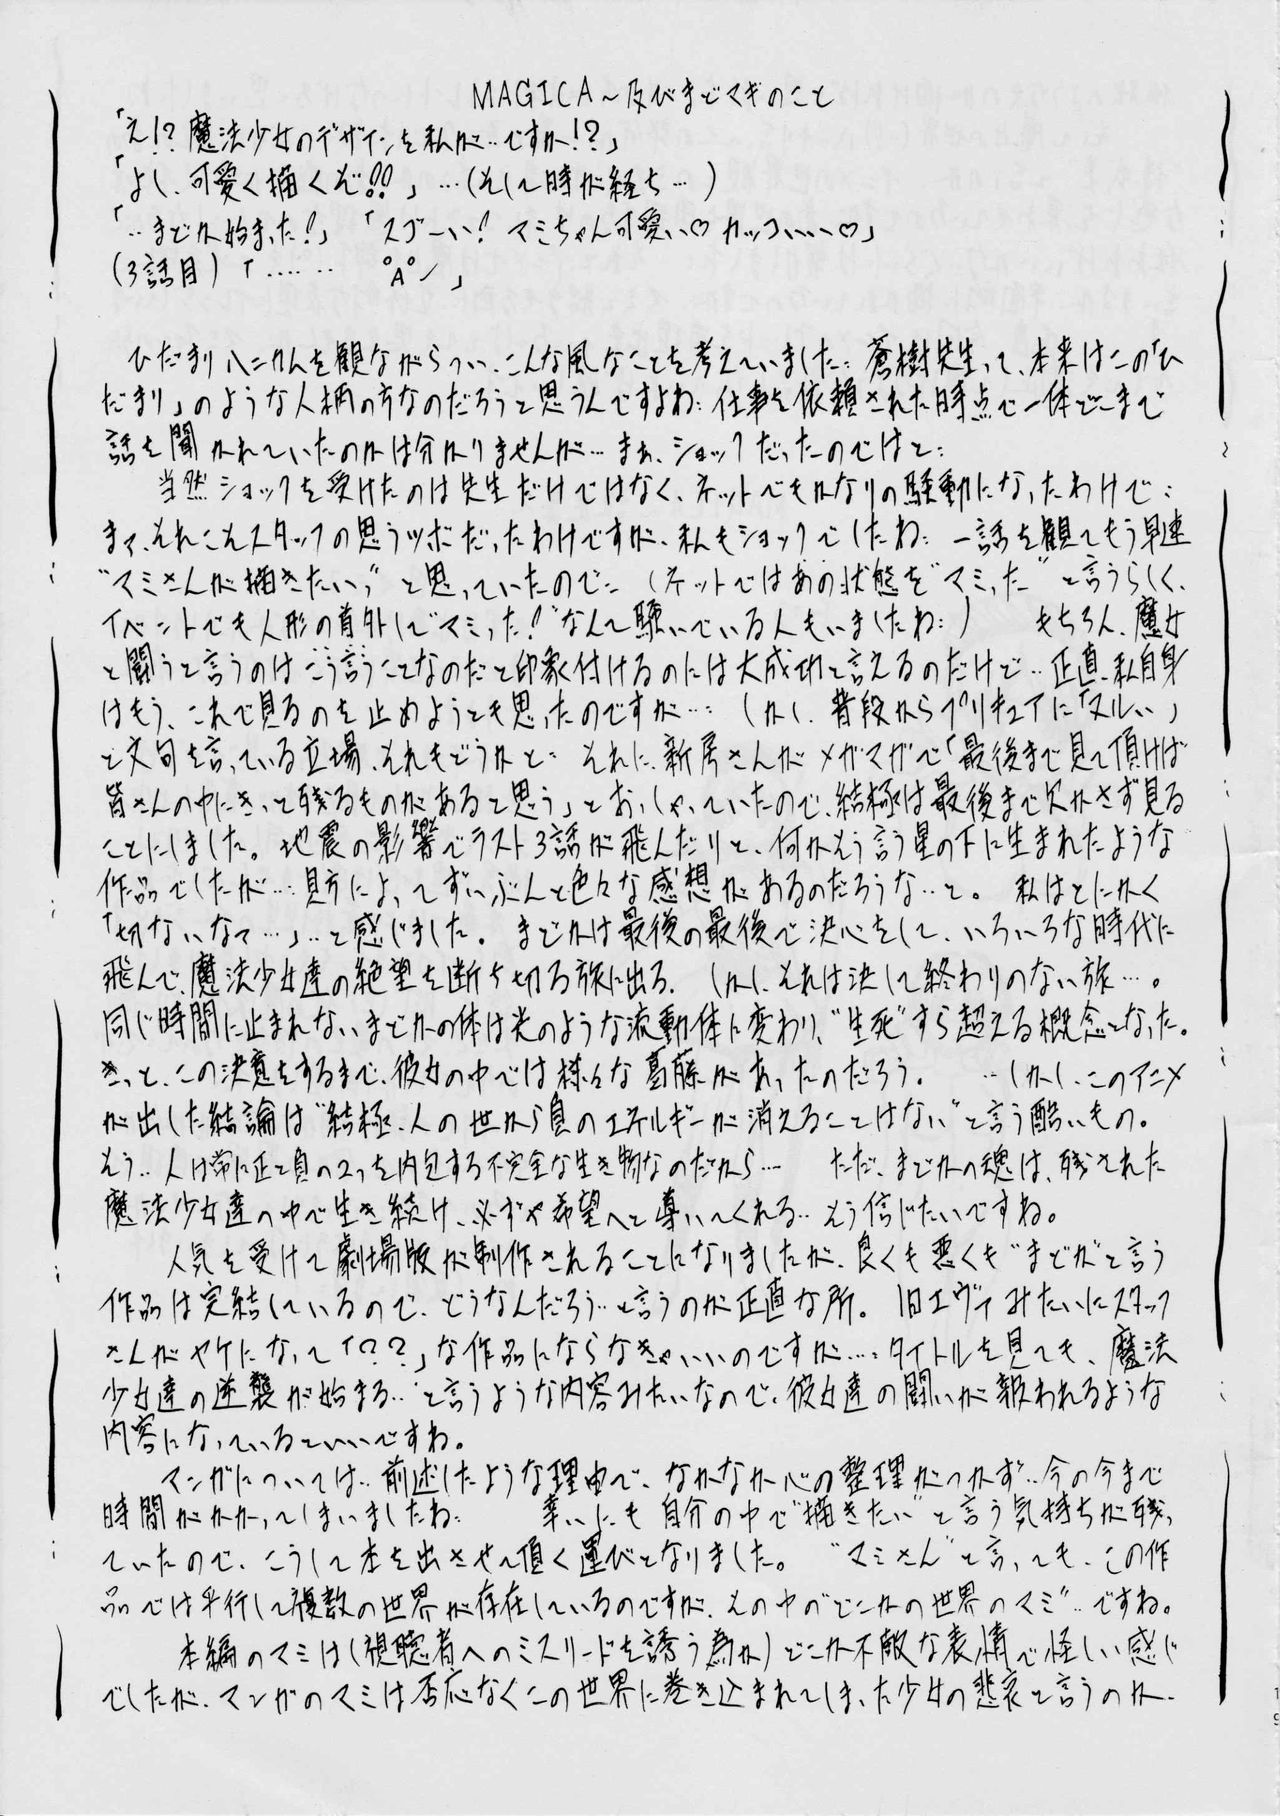 MAGICA～及びまどマギのこと
「え!? 魔法少女のデザインを私が‥ですか!?」
「よし、可愛く描くぞ!!」…(そして時が経ち…)
「‥まどか始まった!」「スゴーい! マミちゃん可愛い♡ カッコいいい♡」
(3話目)「…… °A°ノ 」
ひだまりハニカムを観ながらつい、こんな風なことを考えていました‥ 蒼樹先生って、本来はこの「ひ
だまり」のような人柄の方なのだろうと思うんですよね‥仕事を依頼された時点で一体どこまで
話を聞かれていたのかは分かりませんが…まぁ、ショックだったのではと‥
当然ショックを受けたのは先生だけではなく、ネットでもかなりの騒動になったわけで‥
まァ、それこそスタッフの思うツボだったわけですが、私もショックでしたね‥ 一話を観てもう早速
"マミさんが描きたい"と思っていたので‥ (ネットではあの状態を"マミった"と言うらしく、
イベントでも人形の首外して"マミった!"なんて騒いでいる人もいましたね‥) もちろん、魔女
と闘うと言うのはこう言うことなのだと印象付けるのには大成功と言えるのだけど‥正直、私自身
はもう、これで見るのを止めようとも思ったのですが…‥ しかし、普段からプリキュアに「ヌルい」
と文句を言っている立場、それもどうかと‥ それに、新房さんがメガマガで「最後まで見て頂けば
皆さんの中にきっと残るものがあると思う」とおっしゃっていたので、結極は最後まで欠かさず見る
ことにしました。地震の影響でラスト3話が飛んだりと、何かそう言う星の下に生まれたような
作品でしたが…‥見方によってずいぶんと色々な感想があるのだろうな‥と。 私はとにかく
「切ないなァ…」‥と感じました。まどかは最後の最後で決心をして、いろいろな時代に
飛んで、魔法少女達の絶望を断ち切る旅に出る。しかし、それは決して終わりのない旅…。
同じ時間に止まれないまどかの体は光のような流動体に変わり、"生死"すら超える概念となった。
きっと、この決意をするまで、彼女の中では様々な葛藤があったのだろう。 ‥しかし、このアニメ
が出した結論は"結極、人の世から負のエネルギーが消えることはない"と言う酷いもの。
そう‥人は常に正と負の2つを内包する不完全な生き物なのだから… ただ、まどかの魂は、残された
魔法少女達の中で生き続け、必ずや希望へと導いてくれる‥そう信じたいですね。
人気を受けて劇場版が制作されることになりましたが、良くも悪くも"まどか"と言う
作品は完結しているので、どうなんだろう‥と言うのが正直な所。旧エヴァみたいにスタッフ
さんがヤケになって「??」な作品にならなきゃいいのですが…‥タイトルを見ても、魔法
少女達の逆襲が始まる‥と言うような内容みたいなので、彼女達の闘いが報われるような
内容になっているといいですね。
マンガについては‥前述したような理由で、なかなか心の整理がつかず‥今の今まで
時間がかかってしまいましたね‥ 幸いにも自分の中で"描きたい"と言う気持ちが残っ
ていたので、こうして本を出させて頂く運びとなりました。 "マミさん"と言っても、この作
品では平行して複数の世界が存在しているのですが、その中の"どこかの世界のマミ"‥ですね。
本編のマミは(視聴者へのミスリードを誘う為か)どこか不敵な表情で怪しい感じ
でしたが、マンガのマミは否応なくこの世界に巻き込まれてしまった少女の悲哀と言うのか、